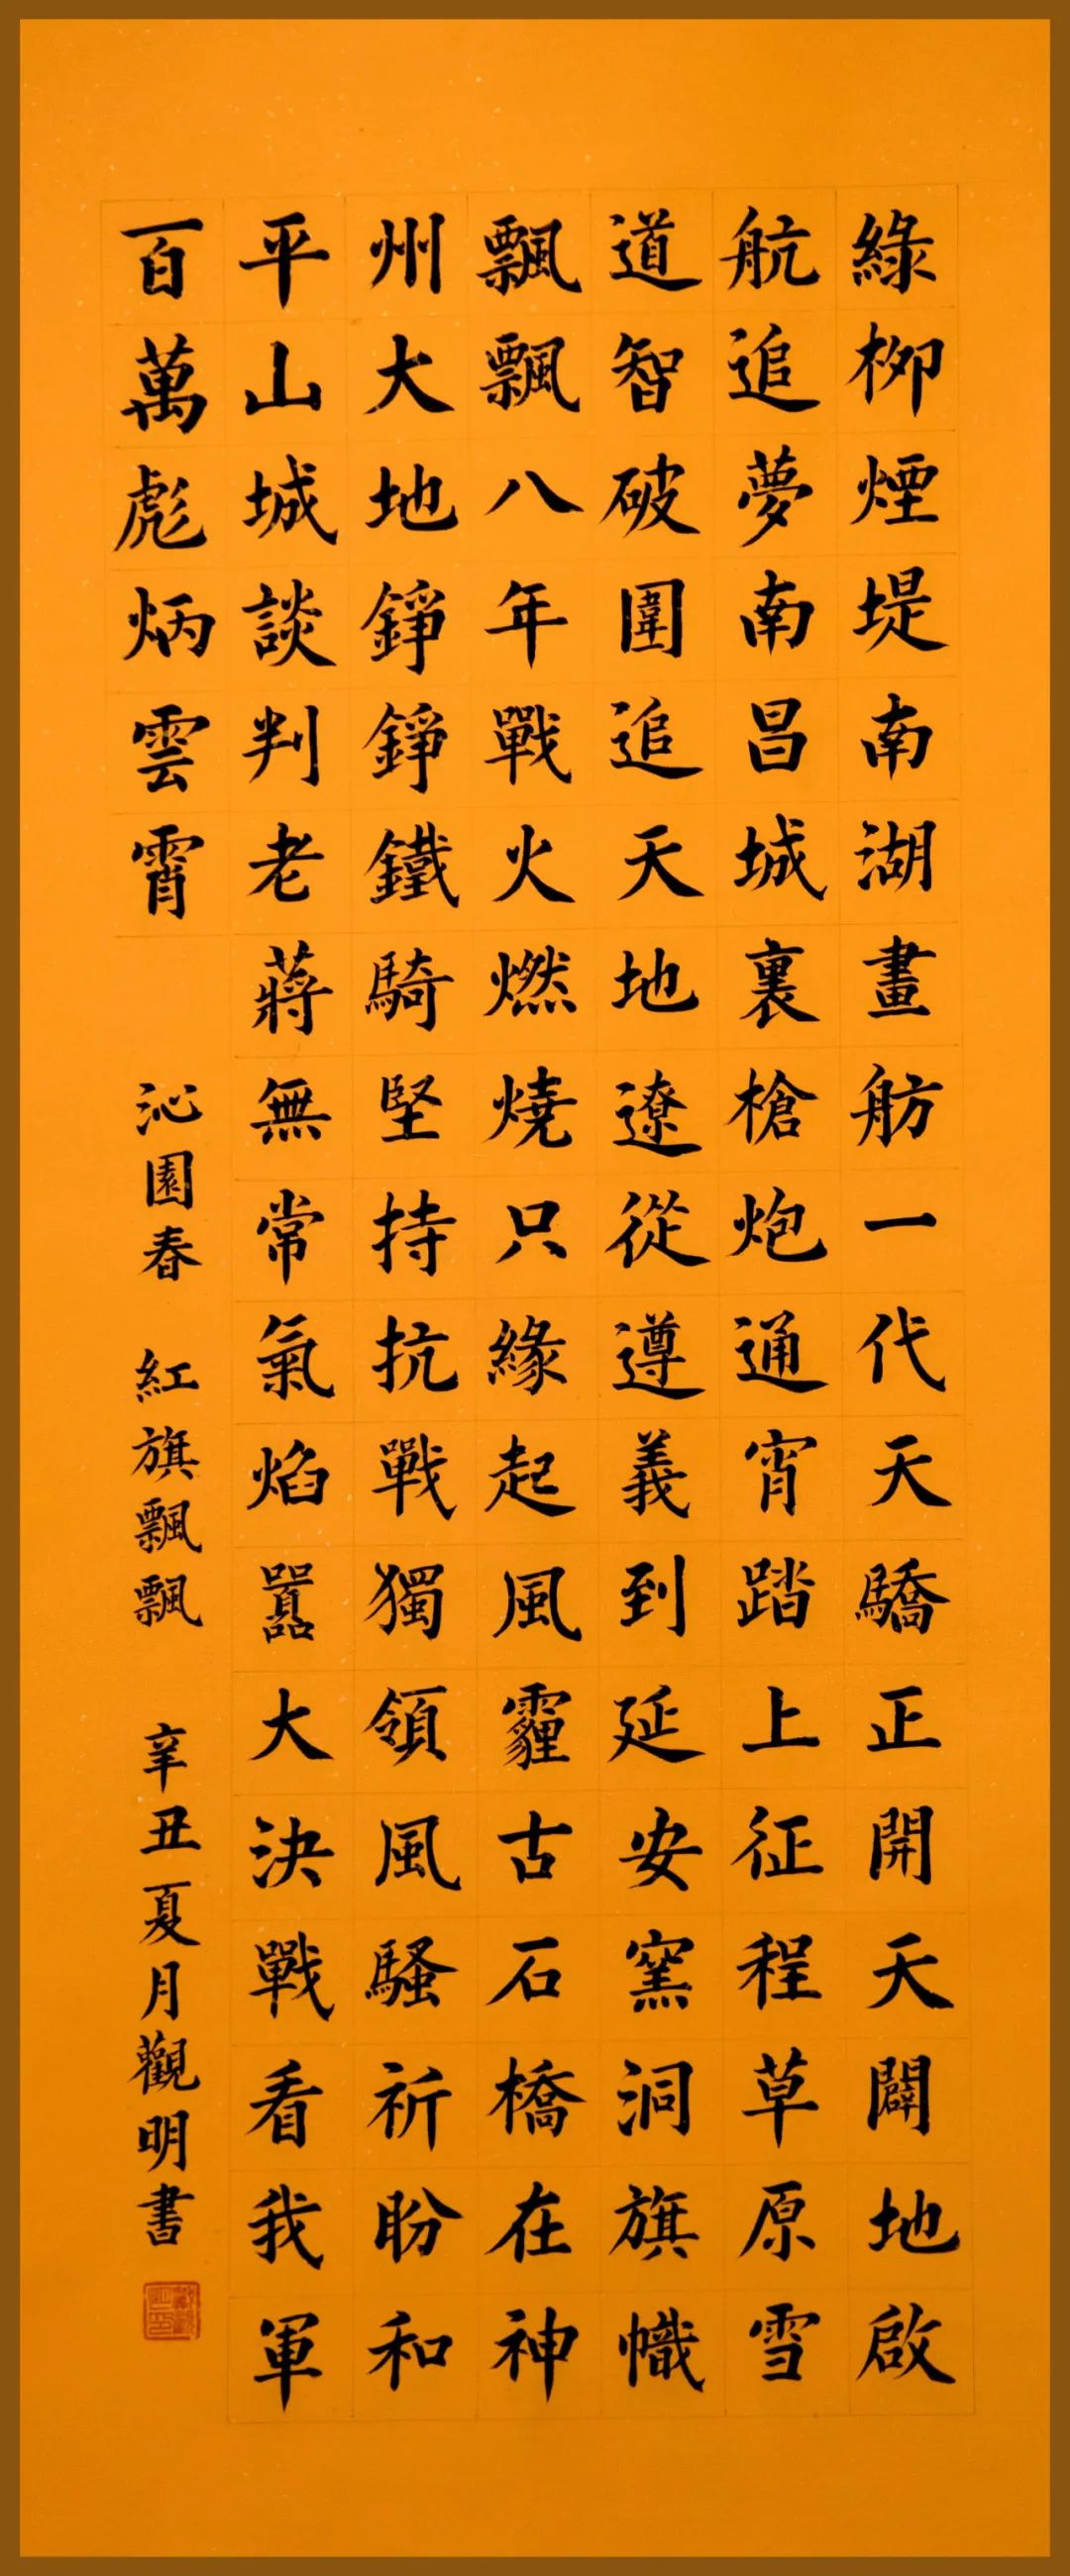 綠柳煙堤南湖畫舫一代天驕正開天闢地啟
航追夢南昌城裏槍炮通宵踏上征程草原雪
道智破圍追天地遼從遵義到延安窯洞旗幟
飄飄八年戰火燃燒只緣起風霾古石橋在神
州大地錚錚鐵騎堅持抗戰獨領風騷祈盼和
平山城談判老蔣無常氣焰囂大決戰看我軍
百萬彪炳雲霄
沁園春 紅旗飄飄 辛丑夏月觀明書